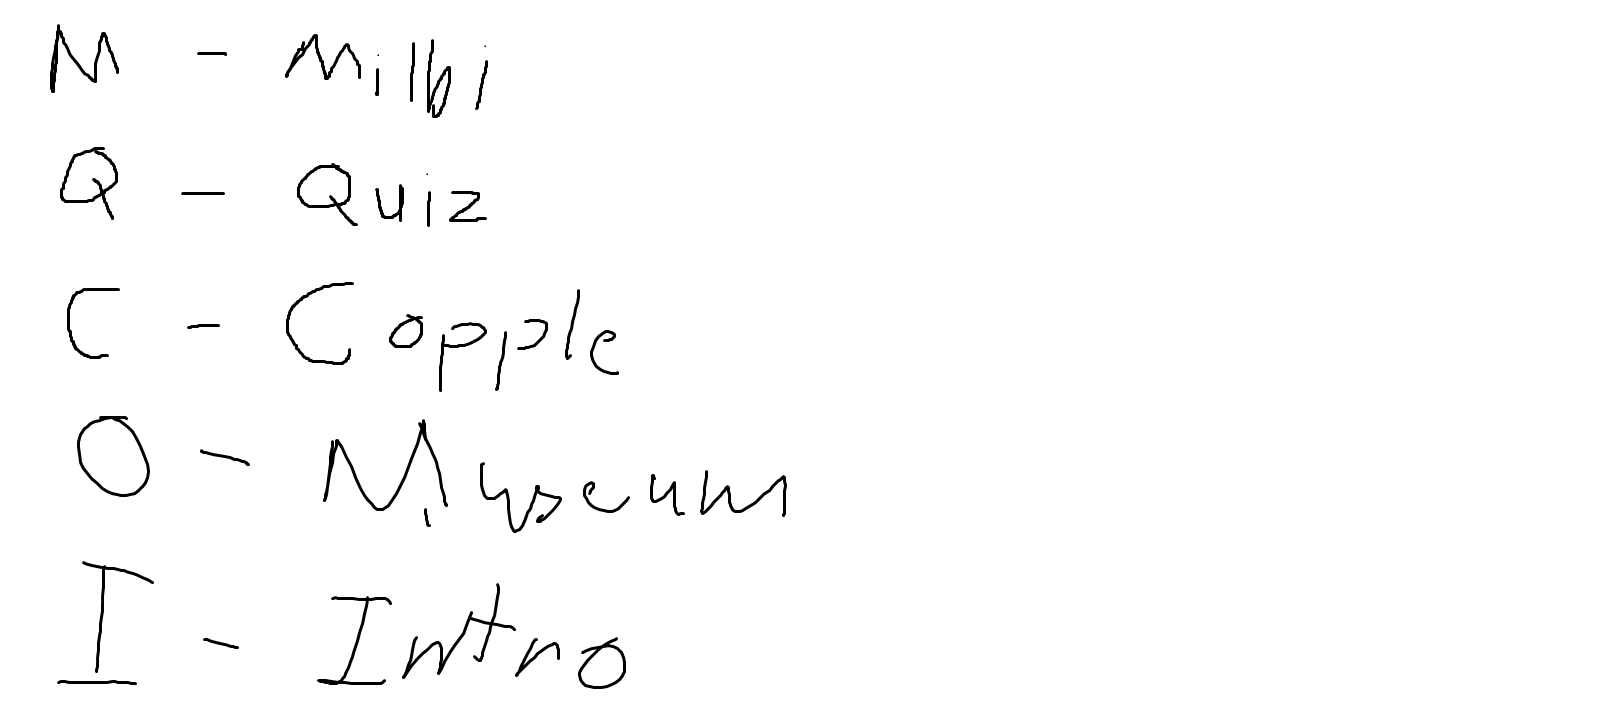 M - Milbi
Q - Quiz
C - Copple
O - Museum
I - Intro